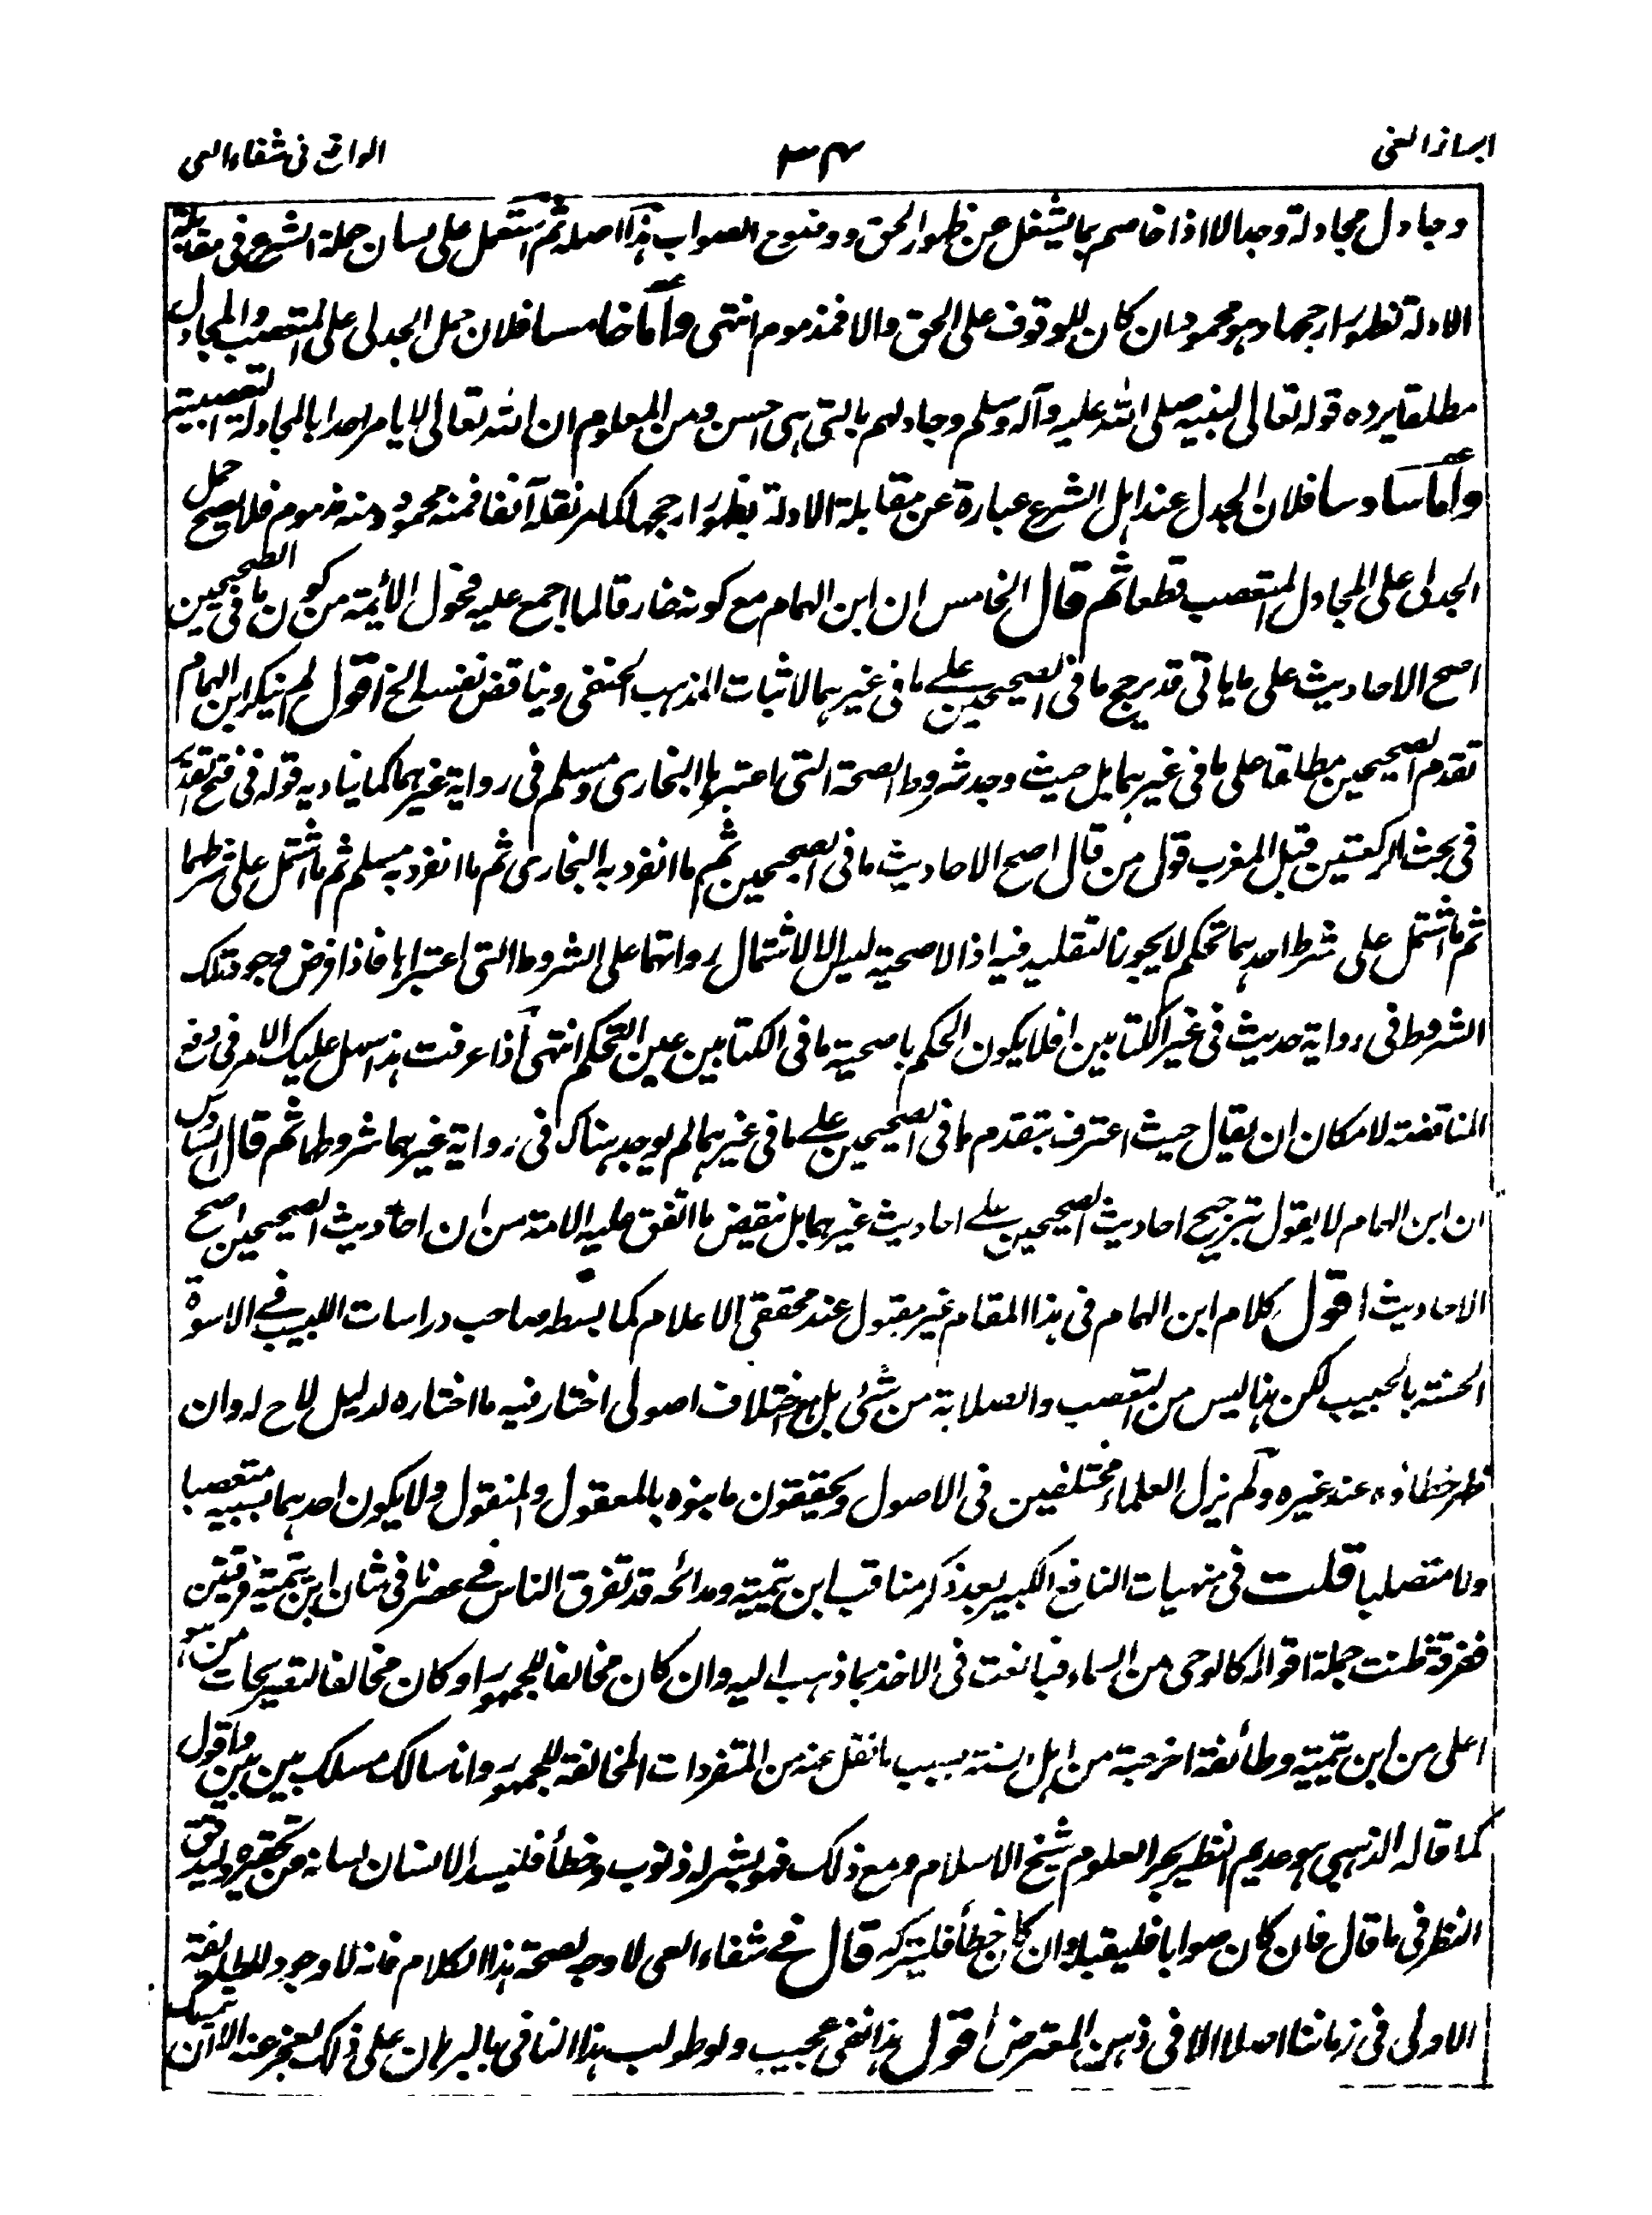 ابراز الغى
٣٤
الواقع فى شفاء العى
وجادل مجادلة وجدالا اذا خاصم بما يشغل عن ظهور الحق ووضوح الصواب هذا اصله ثم استعمل على لسان حملة الشرع فى مقابلة
الادلة لظهور ارجحها وهو محمود ان كان للوقوف على الحق والا فمذموم انتهى وأما خامسا فلان حمل الجدلى على المتعصب والمجادل
مطلقا يرده قوله تعالى لنبيه صلى الله عليه وآله وسلم وجادلهم بالتى هى احسن ومن المعلوم ان الله تعالى لا يامر احدا بالمجادلة التعصبية
وأما سادسا فلان الجدل عند اهل الشرع عبارة عن مقابلة الادلة بظهور ارجحها كما مر نقله آنفا فمنه محمود ومنه مذموم فلا يصح حمل
الجدلى على المجادل المتعصب قطعا ثم قال الخامس ان ابن الهمام مع كونه خارقا لما اجمع عليه فحول الأئمة من كون ما فى الصحيحين
اصح الاحاديث على ما ياتى قد يرجح ما فى الصحيحين على ما فى غيرهما لاثبات المذهب الحنفى ويناقض نفسه الخ اقول لم ينكر ابن الهمام
تقدم الصحيحين مطلقا على ما فى غيرهما بل حيث وجد شروط الصحة التى اعتبرها البخارى ومسلم فى رواية غيرهما كما يناديه قوله فى فتح القدير
فى بحث الركعتين قبل المغرب قول من قال اصح الاحاديث ما فى الصحيحين ثم ما انفرد به البخارى ثم ما انفرد به مسلم ثم ما اشتمل على شرطهما
ثم ما اشتمل على شرط احدهما تحكم لا يجوز التقليد فيه اذ الاصحية ليس الا لاشتمال رواتهما على الشروط التى اعتبراها فاذا فرض وجود تلك
الشروط فى رواية حديث فى غير الكتابين افلا يكون الحكم باصحية ما فى الكتابين عين التحكم انتهى اذا عرفت هذا سهل عليك الامر فى رفع
المناقضة لامكان ان يقال حيث اعترف بتقدم ما فى الصحيحين على ما فى غيرهما لم يوجد هناك فى رواية غيرهما شروطهما ثم قال السادس
ان ابن الهمام لا يقول بترجيح احاديث الصحيحين على احاديث غيرهما بل نقيض ما اتفق عليه الامة من ان احاديث الصحيحين اصح
الاحاديث اقول كلام ابن الهمام فى هذا المقام غير مقبول عند محققى الاعلام كما بسطه صاحب دراسات اللبيب فى الاسوة
الحسنة بالحبيب لكن هذا ليس من التعصب والصلابة من شئ بل هو اختلاف اصولى اختار فيه ما اختاره لدليل لاح له وان
ظهر خطاؤه عند غيره ولم يزل العلماء مختلفين فى الاصول ويحققون ما بنوه بالمعقول والمنقول ولا يكون احدهما بسببه متعصبا
ولا متصلبا قلت فى منهيات النافع الكبير بعد ذكر مناقب ابن تيمية ومدائحه قد تفرق الناس فى عصرنا فى شان ابن تيمية فرقتين
ففرقة ظنت جملة اقواله كالوحى من السماء فبالغت فى الاخذ بما ذهب اليه وان كان مخالفا للجمهور او كان مخالفا لتصريحات من هو
اعلى من ابن تيمية وطائفة اخرجته من اهل السنة بسبب ما نقل عنه من المتفردات المخالفة للجمهور وانا سالك مسلك بين بين واقول
كما قاله الذهبى هو عديم النظير بحر العلوم شيخ الاسلام ومع ذلك فهو بشر له ذنوب وخطأ فليمسك الانسان لسانه من تحقيره وليدقق
النظر فى ما قال فان كان صوابا فليقبله وان كان خطأ فليتركه قال فى شفاء العى لا وجه لصحة هذا الكلام فانه لا وجود للطائفة
الاولى فى زماننا اصلا الا فى ذهن المعترض اقول هذا نفى عجيب ولو طولب هذا النافى بالبرهان على ذلك لعجز عنه الا ان يتمسك